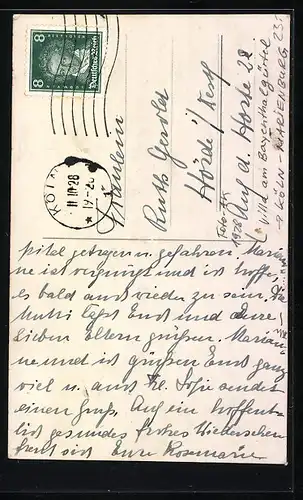 8 8
Deutsches Reich
KÖLN
11.10.28
19-20
Fräulein
Ruth Gerold
Hörde i/Westf
Auf d. Horte 22
1928
Villa am Bayenthalgürtel
KÖLN-MARIENBURG 235
pital getragen u. gefahren. Marian-
ne ist vergnügt und ist hofft,
es bald auch wieder zu sein. Die
Mutti läßt Euch und Eure
lieben Eltern grüßen. Marian-
ne und ich grüßen Euch ganz
viel u. auch Frl. Sofie sendet
einen Gruß. Auf ein hoffent-
lich gesundes frohes Wiedersehen
freut sich Eure Rosemarie